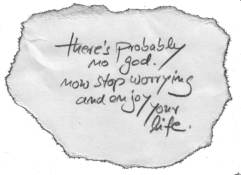 there's probably
no god.
now stop worrying
and enjoy
your
life.